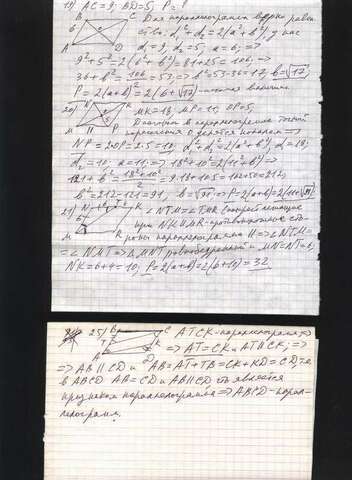 19) AC=9, BD=5, P=?
B C
6
A D
Для параллелограмма верно равен-
ство: d₁²+d₂²=2(a²+b²), у нас
d₁=9, d₂=5, a=6; =>
9²+5²=2(6²+b²)=81+25=106 =>
36+b²=106/2=53; => b²=53-36=17; b=√17
P=2(a+b)=2(6+√17)
20)
MK=18, MP=11, OP=5.
Диагонали в параллелограмме точкой
пересечения O делятся пополам =>
NP=2OP=2·5=10, d₁²+d₂²=2(a²+b²), d₁=18;
d₂=10, a=11; => 18²+10²=2(11²+b²) =>
121+b²=(18²+10²)/2=9·18+10·5=162+50=212;
b²=212-121=91, b=√91 => P=2(a+b)=2(11+√91)
21)
при NK||MR
роны параллелограмма => ∠NTM=
=∠NMT => △MNT равнобедренный и MN=NT=6,
NK=6+4=10; P=2(a+b)=2(6+10)=32
25) B C
T K
A D
ATCK-параллелограмм =>
=> AT=CK и AT||CK; =>
=> AB||CD и AB=AT+TB=CK+KD=CD, т.е.
в ABCD AB=CD и AB||CD является
признаком параллелограмма => ABCD-парал-
лелограмм.